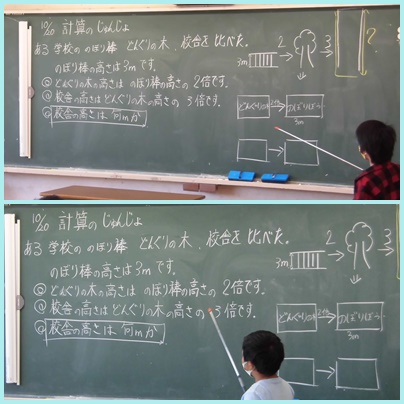 10/20 計算のじゅんじょ
ある学校ののぼり棒 どんぐりの木、校舎を比べた。
のぼり棒の高さは3mです。
◎どんぐりの木の高さはのぼり棒の高さの2倍です。
◎校舎の高さはどんぐりの木の高さの3倍です。
◎校舎の高さは何mか
3m
2
3
どんぐりの木
2倍
のぼりぼう
3m
10/20 計算のじゅんじょ
ある学校ののぼり棒 どんぐりの木、校舎を比べた。
のぼり棒の高さは3mです。
◎どんぐりの木の高さはのぼり棒の高さの2倍です。
◎校舎の高さはどんぐりの木の高さの3倍です。
◎校舎の高さは何mか
3m
2
3
どんぐりの木
2倍
のぼりぼう
3m